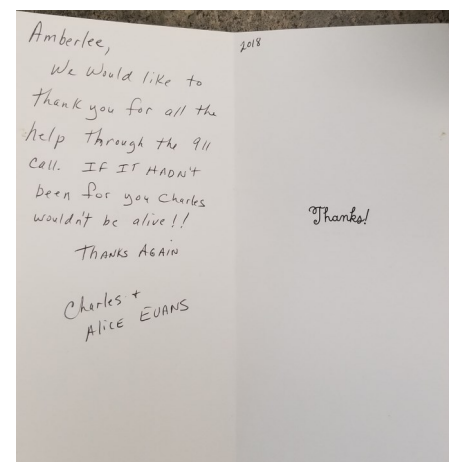 Amberlee,
We Would like to
thank you for all the
help through the 911
call. IF IT HADN'T
been for you Charles
wouldn't be alive!!
THANKS AGAIN
Charles +
Alice EVANS
2018
Thanks!